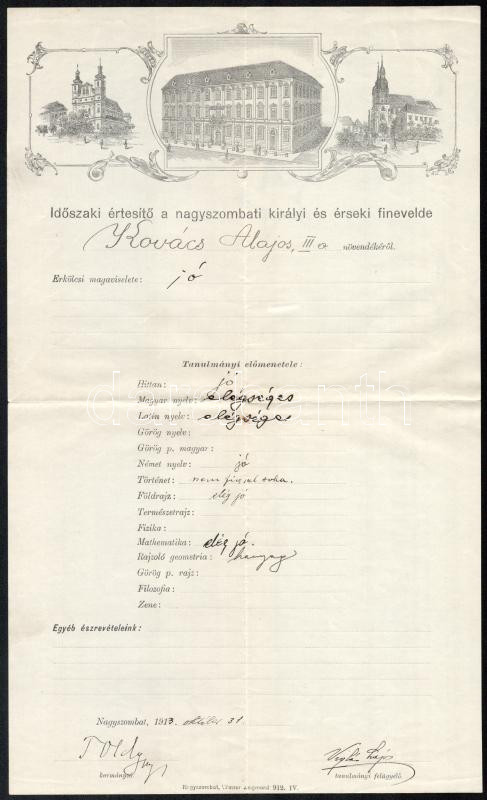 Időszaki értesítő a nagyszombati királyi és érseki finevelde
Kovács Alajos, III a növendékéről.
Erkölcsi magaviselete: jó
Tanulmányi előmenetele:
Hittan: jó
Magyar nyelv: elégséges
Latin nyelv: elégséges
Görög nyelv:
Görög p. magyar:
Német nyelv: jó
Történet: nem figyel soha.
Földrajz: elég jó
Természetrajz:
Fizika:
Mathematika: elég jó.
Rajzoló geometria: hanyag
Görög p. rajz:
Filozofia:
Zene:
Egyéb észrevételeink:
Nagyszombat, 1913. október 31
kormányzó.
tanulmányi felügyelő.
Nagyszombat, Winter Zsigmond 912. IV.